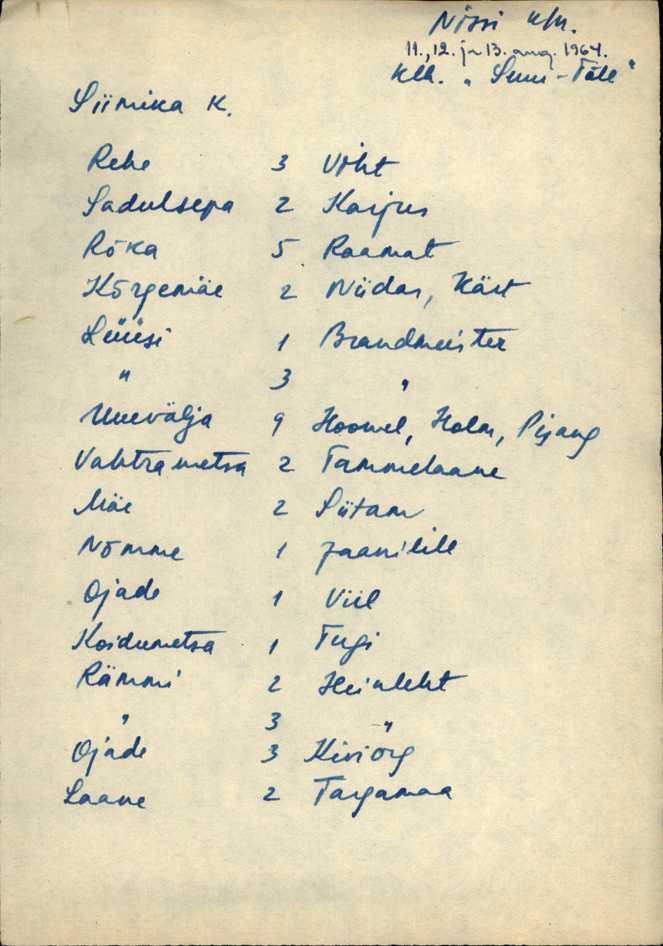 Nissi khn.
11., 12. ja 13. aug. 1964.
klh. „Suur-Tõll"
Siimika K.
Rehe 3 Võht
Sadulsepa 2 Karjus
Rõka 5 Raamat
Kõrgemäe 2 Niidas, Käst
Lüüsi 1 Brandmeister
" 3 "
Uuevälja 9 Hoowel, Holm, Pijang
Vahtrametsa 2 Tammelaane
Mäe 2 Siitam
Nõmme 1 Jaanilill
Ojade 1 Viil
Koidumetsa 1 Tugi
Rämmi 2 Heinleht
" 3 "
Ojade 3 Kiviorg
Laane 2 Targamaa